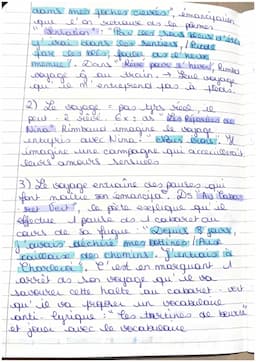 dans mes poches crevées", émancipation
que l'on retrouve ds le poème
"Sensation": "Par les soirs bleus d'été
j'irai dans les sentiers, / Picoté
par les blés, fouler l'herbe
menue". Dans "Rêvé pour l'hiver", Rimbaud
voyage en train. → Seul voyage
qu'il n'entreprend pas à pieds.
2) Le voyage = pas tjrs réel, il
peut ê rêvé. Ex: ds "Les Réparties de
Nina" Rimbaud imagine le voyage
entrepris avec Nina. Il
imagine une campagne qui accueillerait
leurs amours sensuels
3) Le voyage entraîne des pauses qui
font naître son émancip°. Ds "Au Cabaret
Vert", le poète explique qu'il
effectue 1 pause ds 1 cabaret au
cours de sa fugue: "Depuis 8 jours,
j'avais déchiré mes bottines / Aux
cailloux des chemins. J'entrais à
Charleroi". C'est en marquant 1
arrêt ds son voyage qu'il va
savourer cette halte au cabaret-vert
qu'il va préférer un vocabulaire
anti-lyrique: "Les tartines de beurre"
et jouer avec le vocabulaire